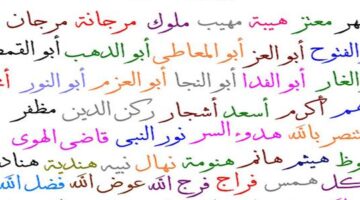 معتز هيبة مهيب ملوك مرجانة مرجان
أبو العز أبو المعاطي أبو الدهب
أبو الفدا أبو النجا أبو العزم أبو النور
أكرم أسعد أشجار ركن الدين مظفر
بالله هدوء السر نور النبي قاضي الهوى
هيثم هانم هنومة نهال نبيه هندية
همس فراج فرج الله عوض الله فضل الله